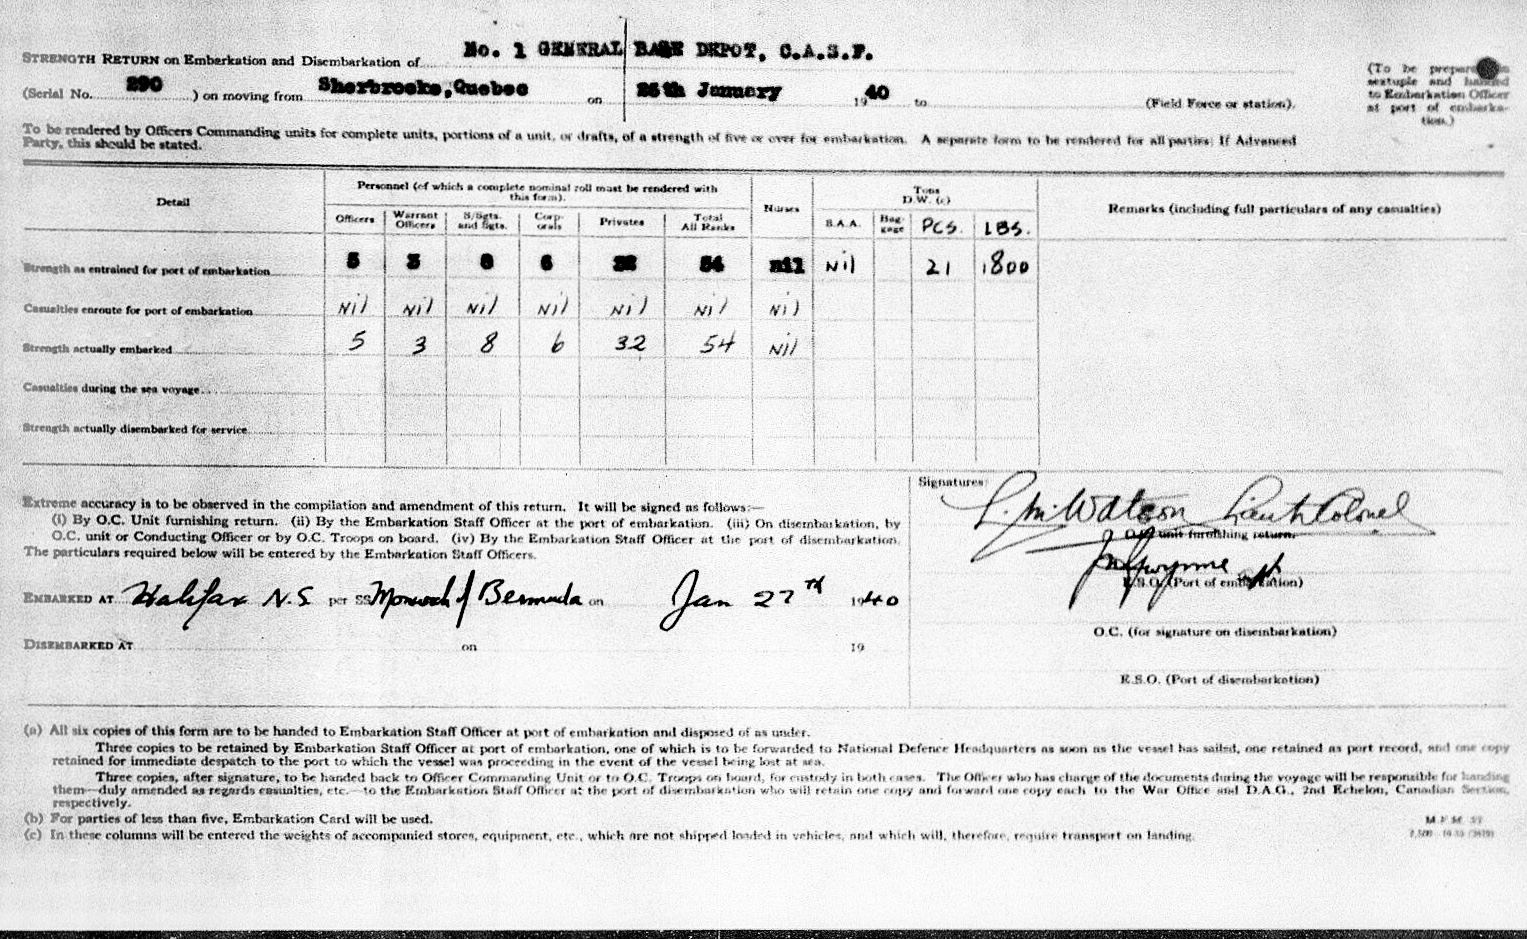 No. 1 GENERAL BASE DEPOT, C.A.S.F.
STRENGTH RETURN on Embarkation and Disembarkation of
(Serial No. 290 ) on moving from Sherbrooke, Quebec on 25th January 1940 to (Field Force or station).
(To be prepared in
sextuple and handed
to Embarkation Officer
at port of embarka-
tion.)
To be rendered by Officers Commanding units for complete units, portions of a unit, or drafts, of a strength of five or over for embarkation. A separate form to be rendered for all parties; If Advanced
Party, this should be stated.
Detail
Personnel (of which a complete nominal roll must be rendered with
this form).
Nurses
Tons
D.W. (c)
Remarks (including full particulars of any casualties)
Officers Warrant Officers S/Sgts. and Sgts. Corp-orals Privates Total All Ranks S.A.A. Bag-gage PCS. LBS.
Strength as entrained for port of embarkation 5 3 8 6 32 54 nil Nil 21 1800
Casualties enroute for port of embarkation Nil Nil Nil Nil Nil Nil Nil
Strength actually embarked 5 3 8 6 32 54 Nil
Casualties during the sea voyage
Strength actually disembarked for service
Extreme accuracy is to be observed in the compilation and amendment of this return. It will be signed as follows:—
(i) By O.C. Unit furnishing return. (ii) By the Embarkation Staff Officer at the port of embarkation. (iii) On disembarkation, by
O.C. unit or Conducting Officer or by O.C. Troops on board. (iv) By the Embarkation Staff Officer at the port of disembarkation.
The particulars required below will be entered by the Embarkation Staff Officers.
EMBARKED AT Halifax N.S. per SS Monarch of Bermuda on Jan 27th 1940
DISEMBARKED AT on 19
Signatures:
Watson Lieut Colonel
O.C. unit furnishing return.
E.S.O. (Port of embarkation)
O.C. (for signature on disembarkation)
E.S.O. (Port of disembarkation)
(a) All six copies of this form are to be handed to Embarkation Staff Officer at port of embarkation and disposed of as under.
Three copies to be retained by Embarkation Staff Officer at port of embarkation, one of which is to be forwarded to National Defence Headquarters as soon as the vessel has sailed, one retained as port record, and one copy
retained for immediate despatch to the port to which the vessel was proceeding in the event of the vessel being lost at sea.
Three copies, after signature, to be handed back to Officer Commanding Unit or to O.C. Troops on board, for custody in both cases. The Officer who has charge of the documents during the voyage will be responsible for handing
them—duly amended as regards casualties, etc.—to the Embarkation Staff Officer at the port of disembarkation who will retain one copy and forward one copy each to the War Office and D.A.G., 2nd Echelon, Canadian Section,
respectively.
(b) For parties of less than five, Embarkation Card will be used.
(c) In these columns will be entered the weights of accompanied stores, equipment, etc., which are not shipped loaded in vehicles, and which will, therefore, require transport on landing.
M.F.M.